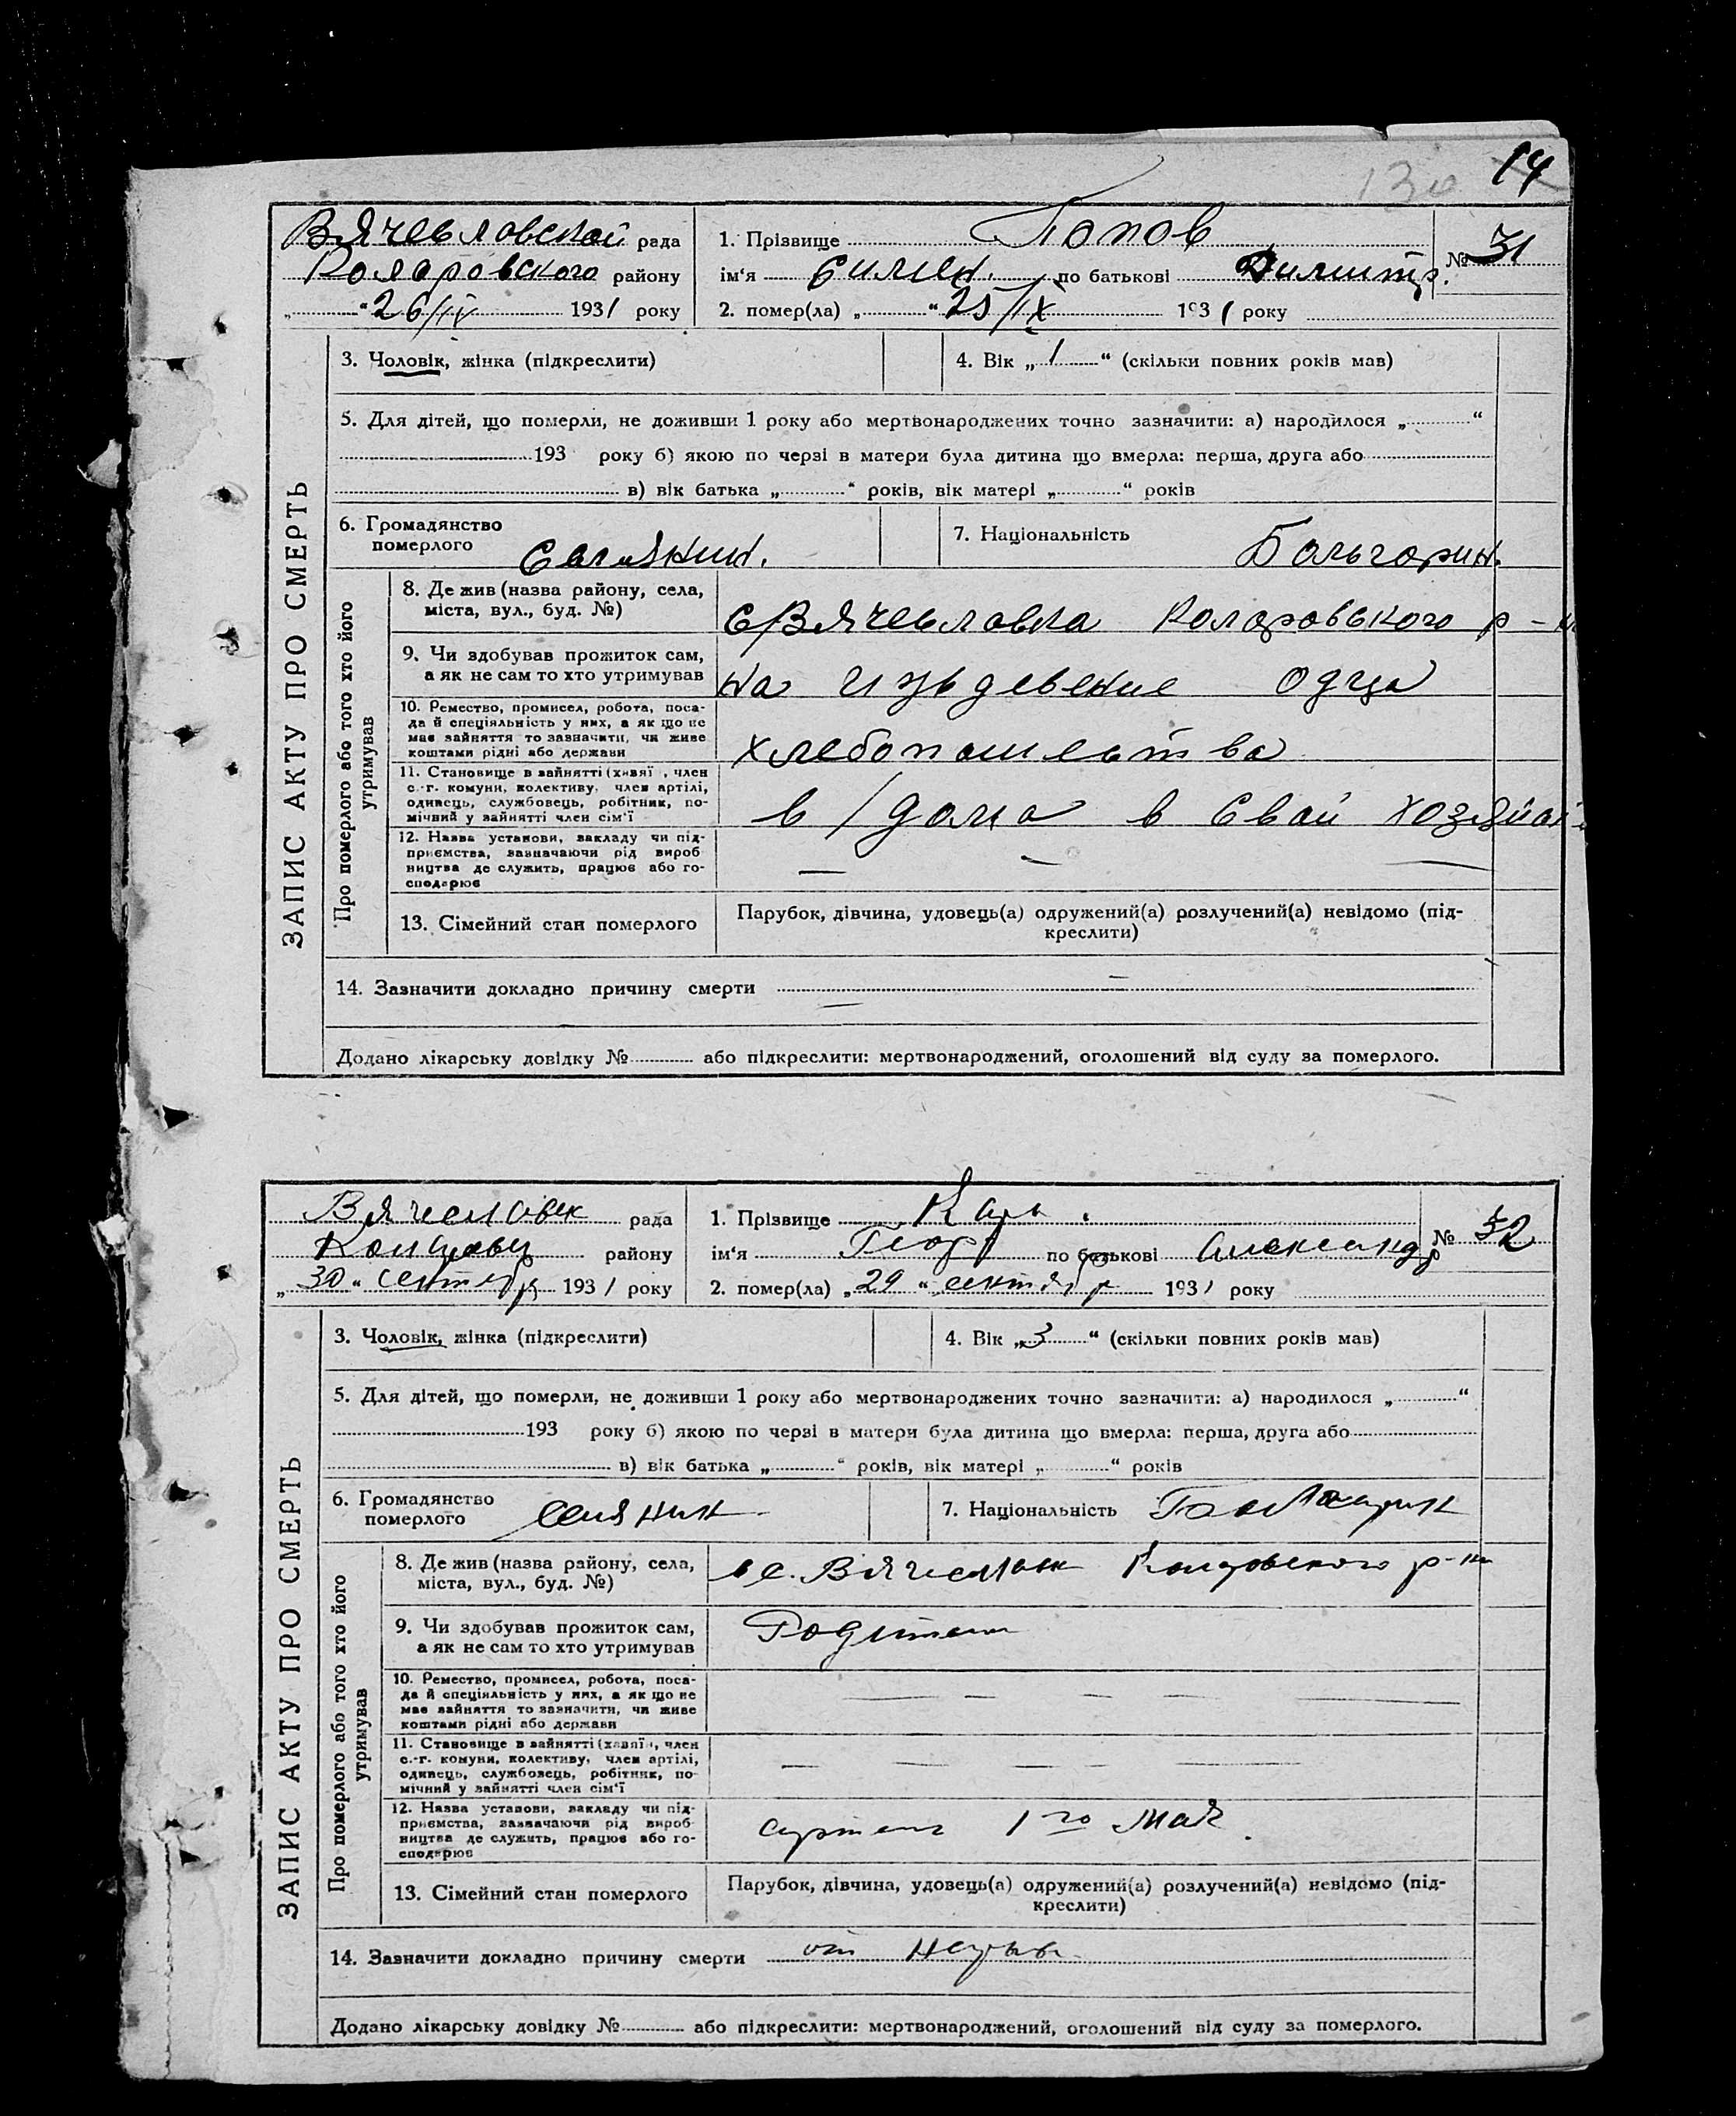 14
Вячевловской рада
Коларовского району
"26/IV 1931 року
1. Прізвище Попов
ім'я Симен. по батькові Димитр.
№ 31
2. помер(ла) „ “ 25/IX 1931 року
ЗАПИС АКТУ ПРО СМЕРТЬ
3. Чоловік, жінка (підкреслити)
4. Вік „ 1 “ (скільки повних років мав)
5. Для дітей, що померли, не доживши 1 року або мертвонароджених точно зазначити: а) народилося „ “
193 року б) якою по черзі в матери була дитина що вмерла: перша, друга або
в) вік батька „ “ років, вік матері „ “ років
6. Громадянство
померлого
7. Національність Больгорин.
Про померлого або того хто його
утримував
8. Де жив (назва району, села,
міста, вул., буд. №)
с/Вячевловка Коларовького р-н
9. Чи здобував прожиток сам,
а як не сам то хто утримував
на изъдевение одца
10. Ремество, промисел, робота, поса-
да й спеціяльність у них, а як що не
має зайняття то зазначити, чи живе
коштами рідні або держави
хлебопашества
11. Становище в зайнятті (хазяї , член
с.-г. комуни, колективу, член артілі,
одинець, службовець, робітник, по-
мічний у зайнятті член сім'ї
в/дома в Свай хозяйс
12. Назва установи, закладу чи під-
приємства, зазначаючи рід вироб
ництва де служить, працює або го-
сподарює
— — —
13. Сімейний стан померлого
Парубок, дівчина, удовець(а) одружений(а) розлучений(а) невідомо (під-
креслити)
14. Зазначити докладно причину смерти —
—
Додано лікарську довідку № або підкреслити: мертвонароджений, оголошений від суду за померлого.
Вячеславск рада
району
„30“ сентября 1931 року
1. Прізвище
ім'я Георг по батькові Александр
№ 32
2. помер(ла) „29“ сентябр 1931 року
ЗАПИС АКТУ ПРО СМЕРТЬ
3. Чоловік, жінка (підкреслити)
4. Вік „3“ (скільки повних років мав)
5. Для дітей, що померли, не доживши 1 року або мертвонароджених точно зазначити: а) народилося „ “
193 року б) якою по черзі в матери була дитина що вмерла: перша, друга або
в) вік батька „ “ років, вік матері „ “ років
6. Громадянство
померлого
селянин
7. Національність
Про померлого або того хто його
утримував
8. Де жив (назва району, села,
міста, вул., буд. №)
в с. Вячеславк р-н
9. Чи здобував прожиток сам,
а як не сам то хто утримував
Родители
10. Ремество, промисел, робота, поса-
да й спеціяльність у них, а як що не
має зайняття то зазначити, чи живе
коштами рідні або держави
— — — — —
11. Становище в зайнятті (хазяїн, член
с.-г. комуни, колективу, член артілі,
одинець, службовець, робітник, по-
мічний у зайнятті член сім'ї
— — — — —
12. Назва установи, закладу чи під-
приємства, зазначаючи рід вироб
ництва де служить, працює або го-
сподарює
артель 1го Мая.
13. Сімейний стан померлого
Парубок, дівчина, удовець(а) одружений(а) розлучений(а) невідомо (під-
креслити)
14. Зазначити докладно причину смерти от
Додано лікарську довідку № або підкреслити: мертвонароджений, оголошений від суду за померлого.